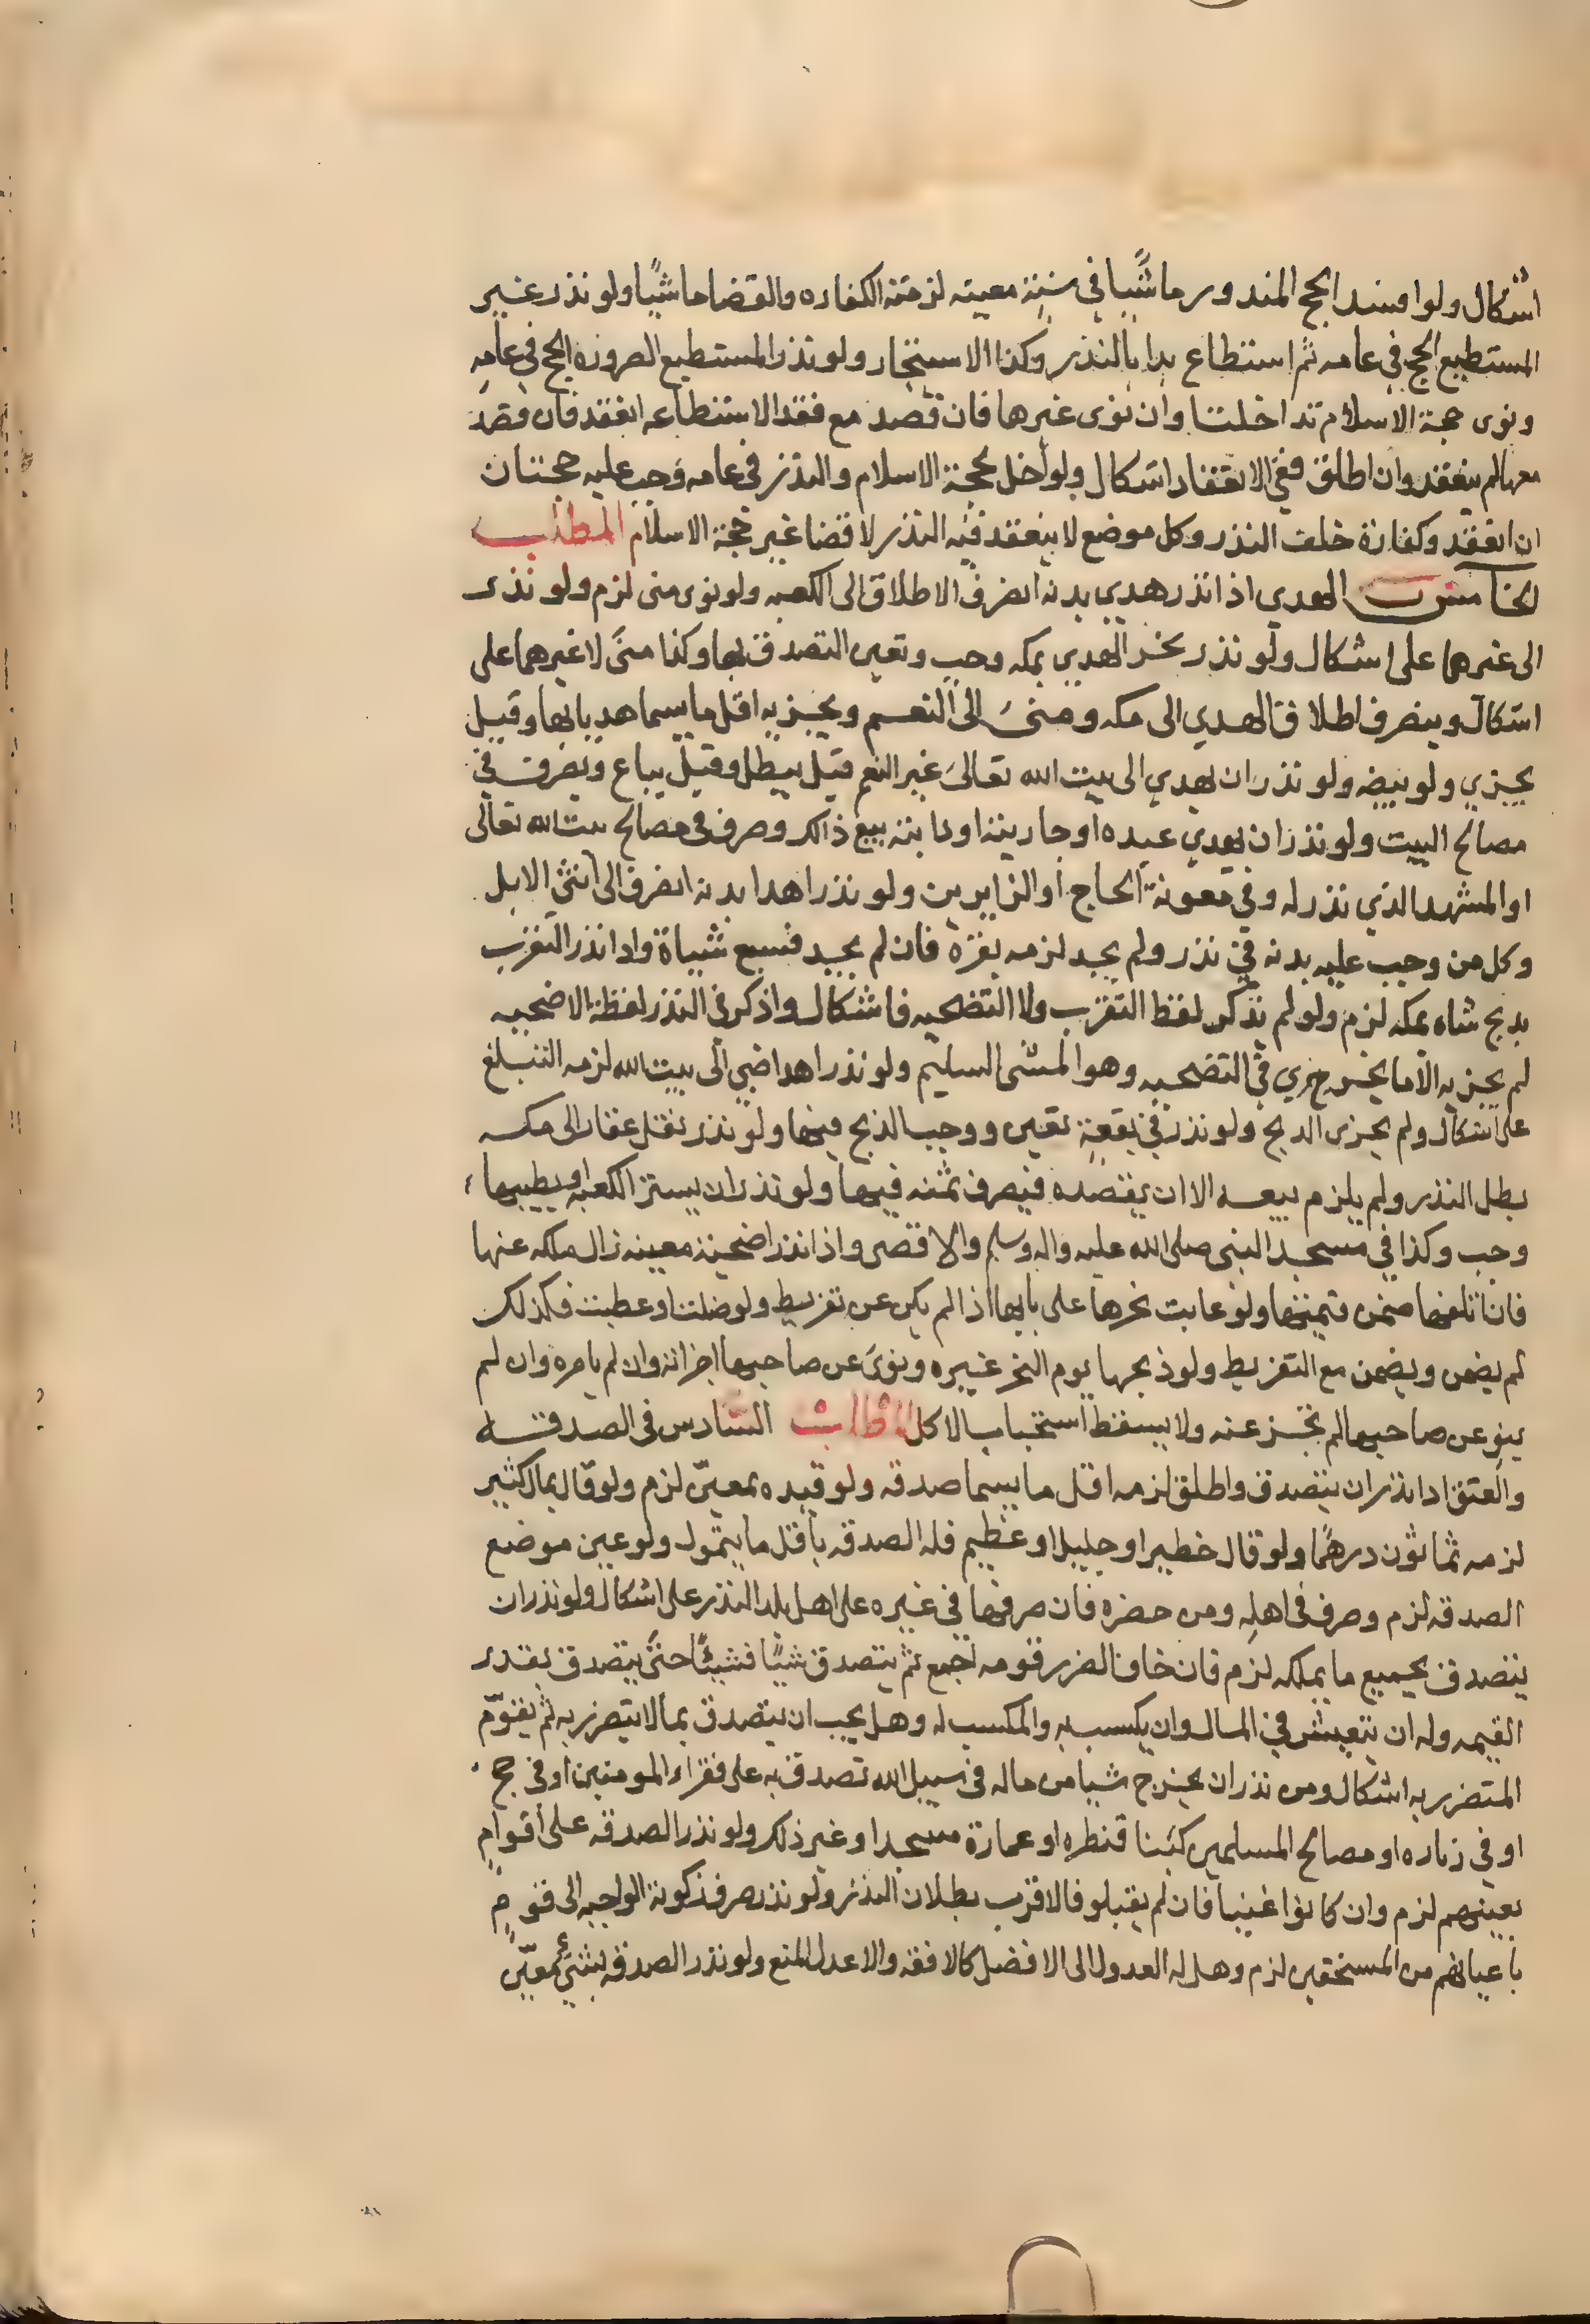 اشكال ولو افسد الحج المنذور ماشيا في سنة معينه لزمته الكفاره والقضا ماشيا ولو نذر غير
المستطيع الحج في عامه ثم استطاع بدا بالنذر وكذا الاستيجار ولو نذر المستطيع الصروره الحج في عامه
ونوى حجة الاسلام تداخلتا وان نوى غيرها فان قصد مع فقد الاستطاعه انعقد فان قصد
معها لم ينعقد وان اطلق ففي الانعقاد اشكال ولو اخل بحجة الاسلام والنذر في عامه وجب عليه حجتان
ان انعقد وكفارة خلف النذر وكل موضع لا ينعقد فيه النذر لا قضا غير حجة الاسلام المطلب
الخامس الهدي اذا نذر هدي بدنه انصرف الاطلاق الى الكعبه ولو نوى منى لزم ولو نذر
الى غيرهما على اشكال ولو نذر نحر الهدي بمكه وجب وتعين التصدق بها وكذا منى لا غيرهما على
اشكال وينصرف اطلاق الهدي الى مكه ومنى الى النعم ويجزيه اقل ما يسما هديا بها وقيل
يجزي ولو بيضه ولو نذر ان يهدي الى بيت الله تعالى غير النعم قيل يبطل وقيل يباع ويصرف في
مصالح البيت ولو نذر ان يهدي عبده او جاريته او دابته بيع ذالك وصرف في مصالح بيت الله تعالى
او المشهد الذي نذر له وفي معونة الحاج او الزايرين ولو نذر اهدا بدنه انصرف الى انثى الابل
وكل من وجب عليه بدنه في نذر ولم يجد لزمه بقرة فان لم يجد فسبع شياة واذا نذر التقرب
بذبح شاه بمكه لزم ولو لم يذكر لفظ التقرب ولا التضحيه فاشكال واذكر في النذر لفظة الاضحيه
لم يجزيه الا ما يجزي في التضحيه وهو المثنى السليم ولو نذر اهدا ضبي الى بيت الله لزمه التبليغ
على اشكال ولم يجزى الذبح ولو نذر في بقعة تعين ووجب الذبح فيها ولو نذر نقل عقار الى مكه
بطل النذر ولم يلزم بيعه الا ان يقصده فيصرف ثمنه فيها ولو نذر ان يستر الكعبه او يطيبها
وجب وكذا في مسجد النبي صلى الله عليه واله وسلم والاقصى واذا نذر اضحيتة معينه زال ملكه عنها
فان اتلفها ضمن قيمتها ولو عابت نحرها على ما بها اذا لم يكن عن تفريط ولو ضلت او عطبت فكذلك
لم يضمن ويضمن مع التفريط ولو ذبحها يوم النحر غيره ونوى عن صاحبها اجزاته وان لم يامره وان لم
ينو عن صاحبها لم تجز عنه ولا يسقط استحباب الاكل المطلب السادس في الصدقه
والعتق اذا نذر ان يتصدق واطلق لزمه اقل ما يسما صدقه ولو قيده بمعين لزم ولو قال بمال كثير
لزمه ثمانون درهما ولو قال خطير او جليل او عظيم فله الصدقه باقل ما يتمول ولو عين موضع
الصدقه لزم وصرف في اهله ومن حضره فان صرفها في غيره على اهل بلد النذر على اشكال ولو نذر ان
يتصدق بجميع ما يملكه لزم فان خاف الضرر قومه اجمع ثم يتصدق شيئا فشيئا حتى يتصدق بقدر
القيمه وله ان يتعيش في المال وان يكسب به والمكسب له وهل يجب ان يتصدق بما لا يتضرر به ثم يقوّم
المتضرر به اشكال ومن نذر ان يخرج شيا من ماله في سبيل الله تصدق به على فقراء المومنين او في حج
او في زياره او مصالح المسلمين كبنا قنطره او عمارة مسجد او غير ذلك ولو نذر الصدقه على اقوام
بعينهم لزم وان كانوا اغنيا فان لم يقبلو فالاقرب بطلان النذر ولو نذر صرف زكوته الواجبه الى قوم
باعيانهم من المستحقين لزم وهل له العدول الى الافضل كالافقه والاعدل المنع ولو نذر الصدقه بشئ معيّن